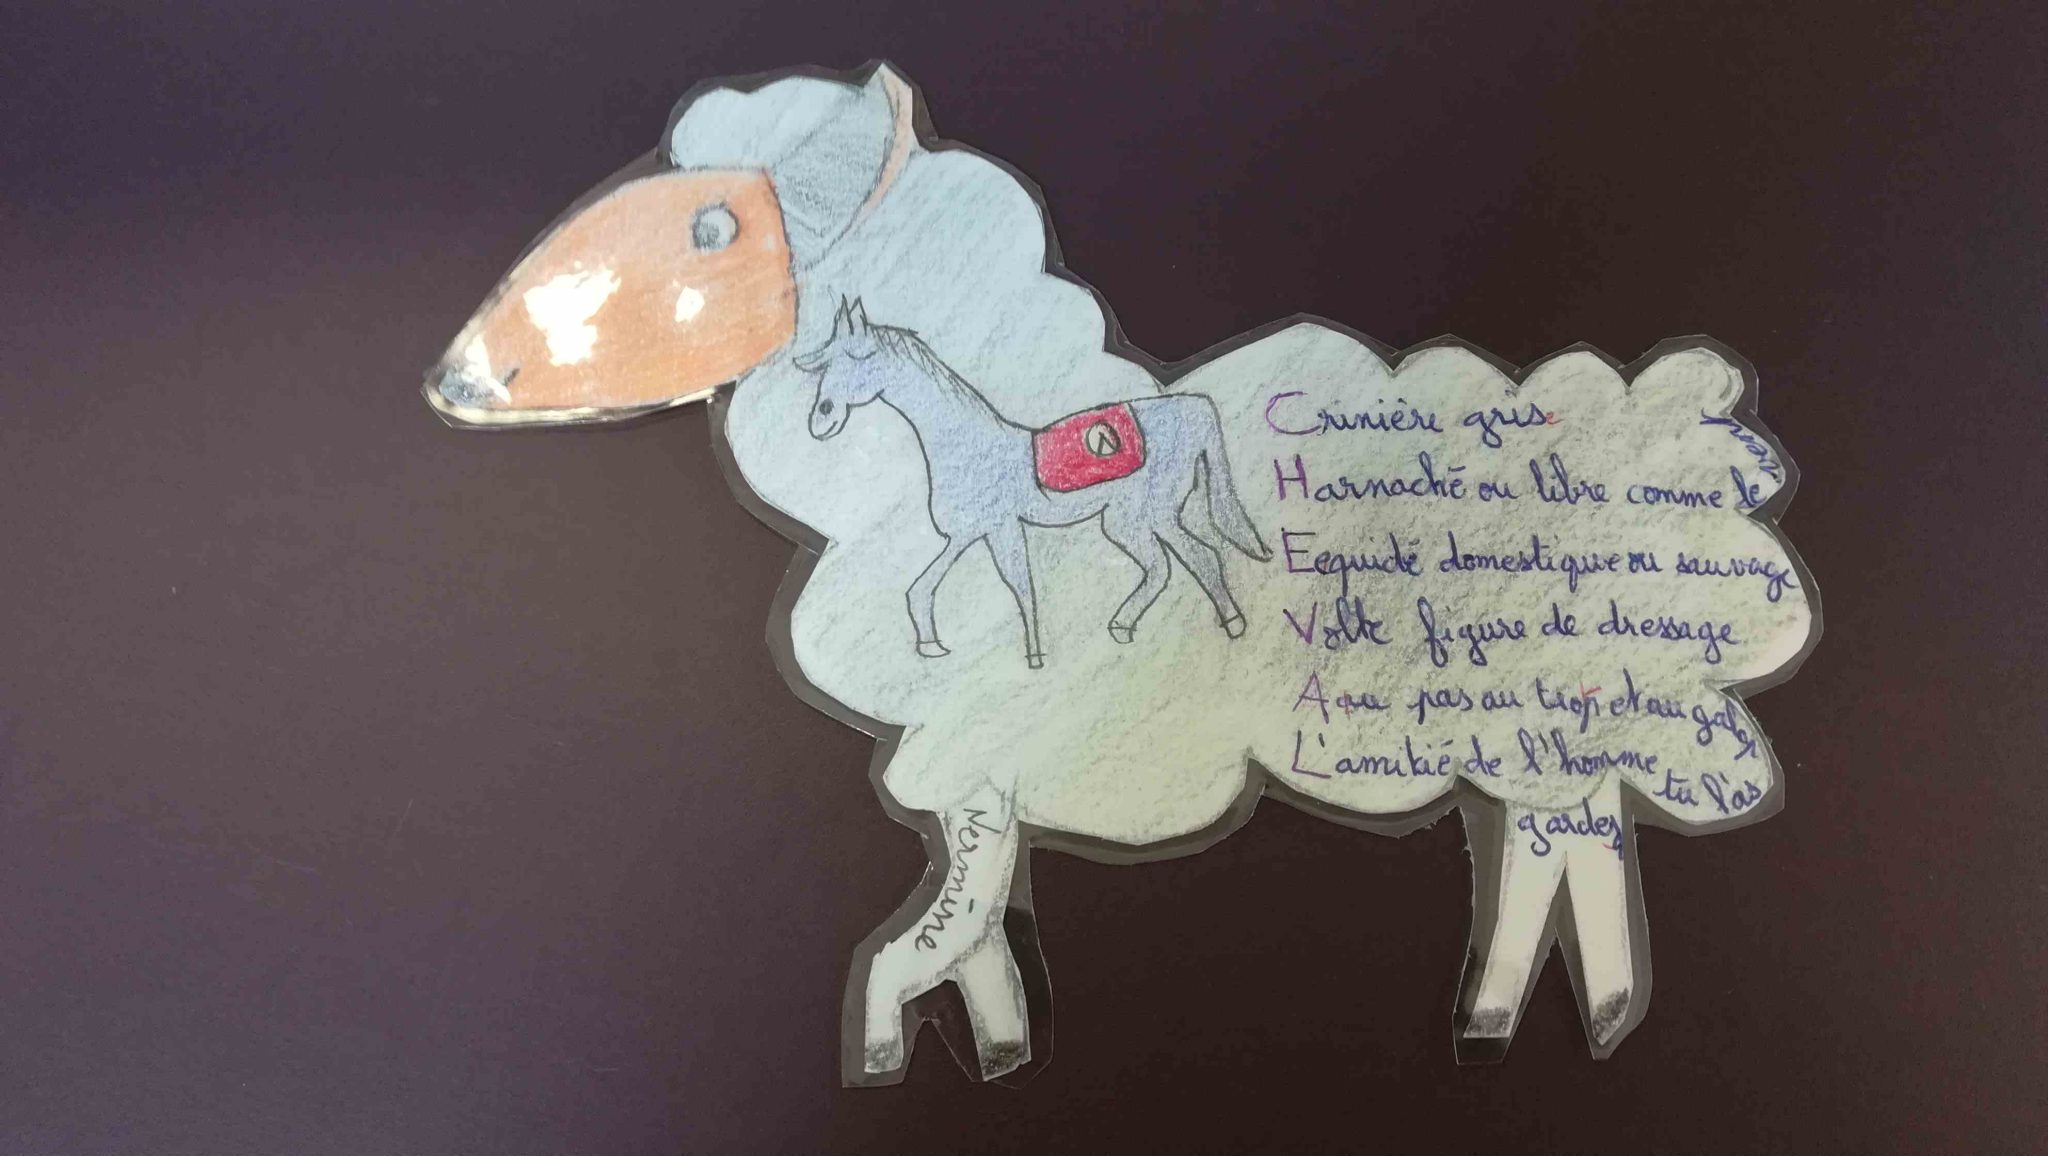 Crinière grise
Harnaché ou libre comme le vent
Eequidé domestique ou sauvage
Volte figure de dressage
Au pas au trot et au galop
L'amitié de l'homme tu l'as
gardes
Nermine